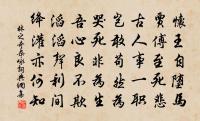 懷王自墮馬
賈傅至死悲
古人事一職
豈敢苟然為
哭死非為生
吾心良不欺
滔滔聲利間
絳灌亦何知